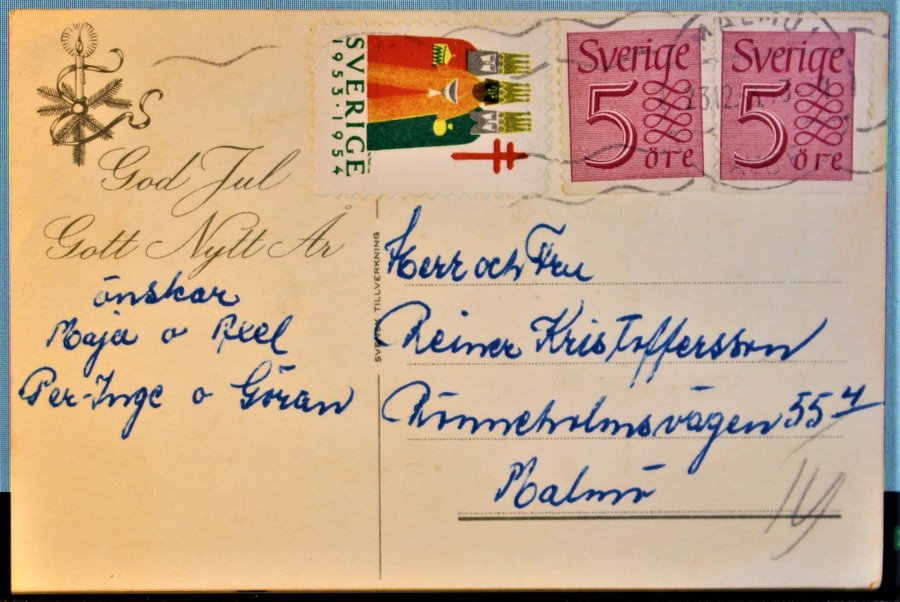 God Jul
Gott Nytt År
önskar
Maja o Axel
Per-Inge o Göran
SVERIGE
1953·1954
Sverige
5
öre
Sverige
5
öre
MALMÖ
SVENSK TILLVERKNING
Herr och Fru
Reiner Kristoffersson
Rönneholmsvägen 55 4
Malmö